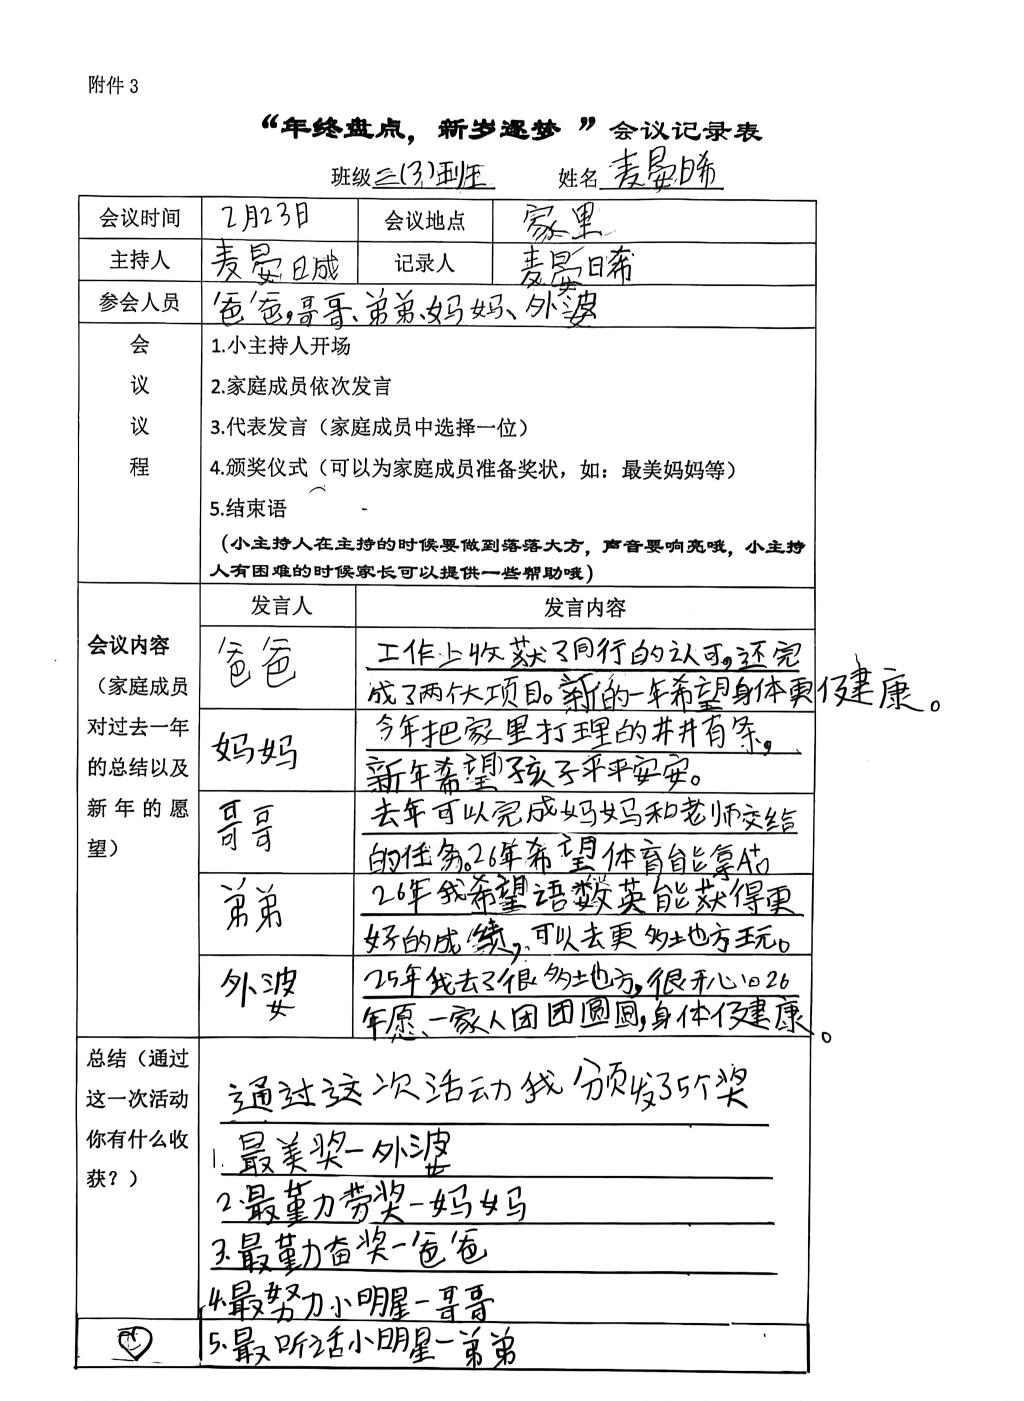 附件 3
“年终盘点，新岁逐梦 ”会议记录表
班级 三(3)班 姓名 麦晏晞
会议时间 2月23日 会议地点 家里
主持人 麦晏晟 记录人 麦晏晞
参会人员 爸爸,哥哥、弟弟、妈妈、外婆
会 1.小主持人开场
议 2.家庭成员依次发言
议 3.代表发言（家庭成员中选择一位）
程 4.颁奖仪式（可以为家庭成员准备奖状，如：最美妈妈等）
5.结束语
（小主持人在主持的时候要做到落落大方，声音要响亮哦，小主持
人有困难的时候家长可以提供一些帮助哦）
发言人 发言内容
会议内容
（家庭成员
对过去一年
的总结以及
新年的愿
望）
爸爸 工作上收获了同行的认可,还完
成了两个大项目。新的一年希望身体更健康。
妈妈 今年把家里打理的井井有条,
新年希望孩子平平安安。
哥哥 去年可以完成妈妈和老师交给
的任务。26年希望体育能拿A+。
弟弟 26年我希望语数英能获得更
好的成绩,可以去更多地方玩。
外婆 25年我去了很多地方,很开心。26
年愿、一家人团团圆圆,身体健康。
总结（通过
这一次活动
你有什么收
获？）
通过这次活动我颁发了5个奖
1.最美奖一外婆
2.最勤劳奖一妈妈
3.最勤奋奖一爸爸
4.最努力小明星一哥哥
5.最听话小明星一弟弟